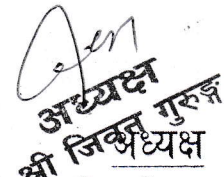 अध्यक्ष
श्री जिवन गुरुङ्ग
अध्यक्ष